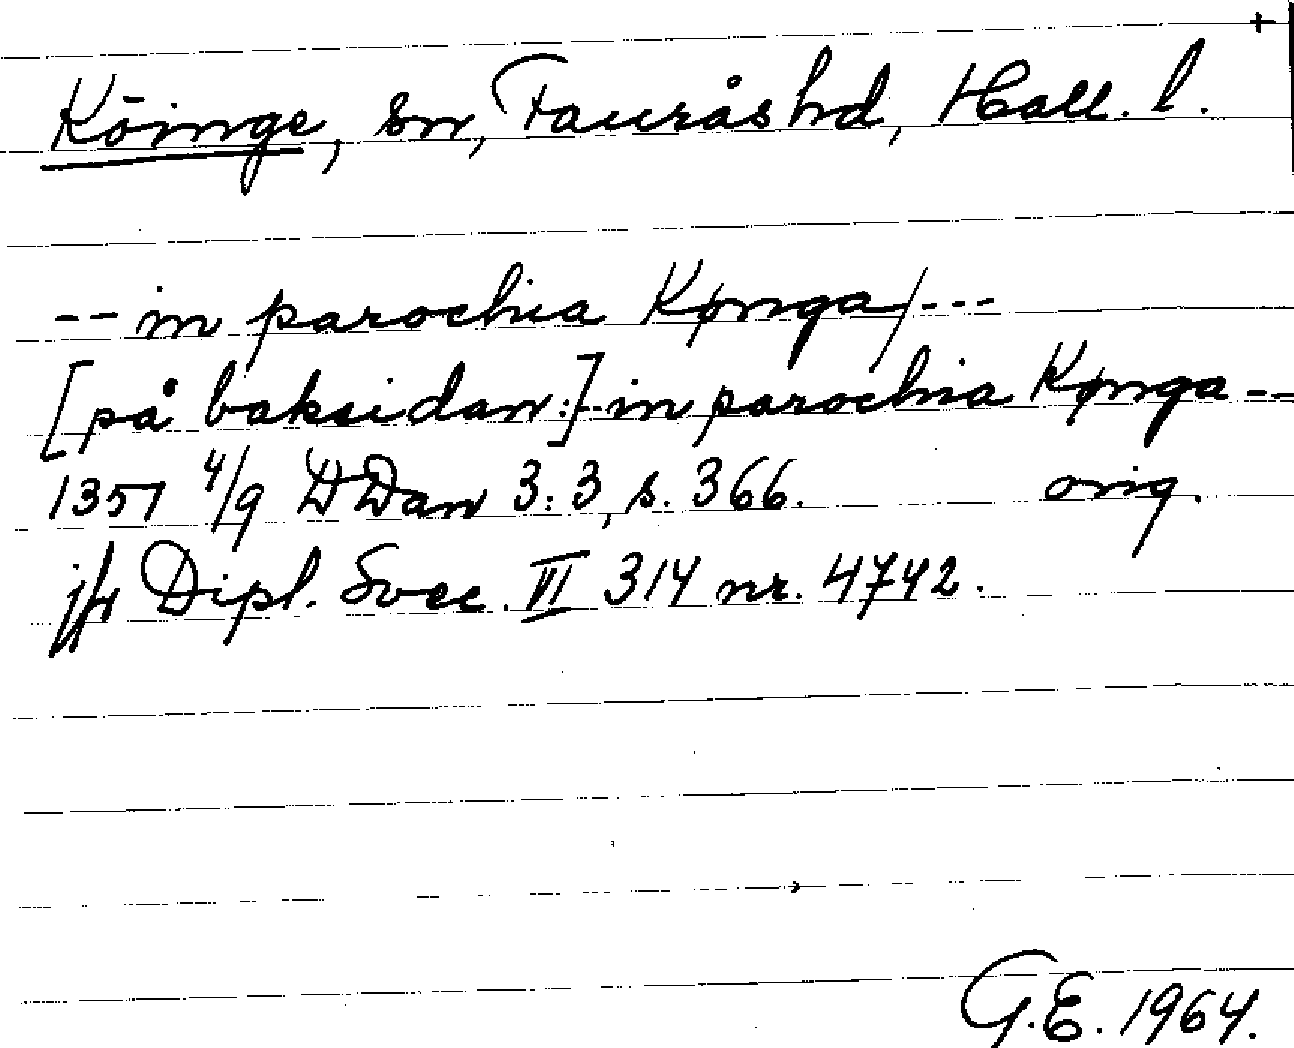 +
Köinge, sn, Faurås hd, Hall. l.
-- in parochia Kønga/---
[på baksidan:]-- in parochia Kønga --
1351 4/9 DDan 3:3, s. 366. orig.
jfr Dipl. Svec. VI 314 nr. 4742.
G.E. 1964.